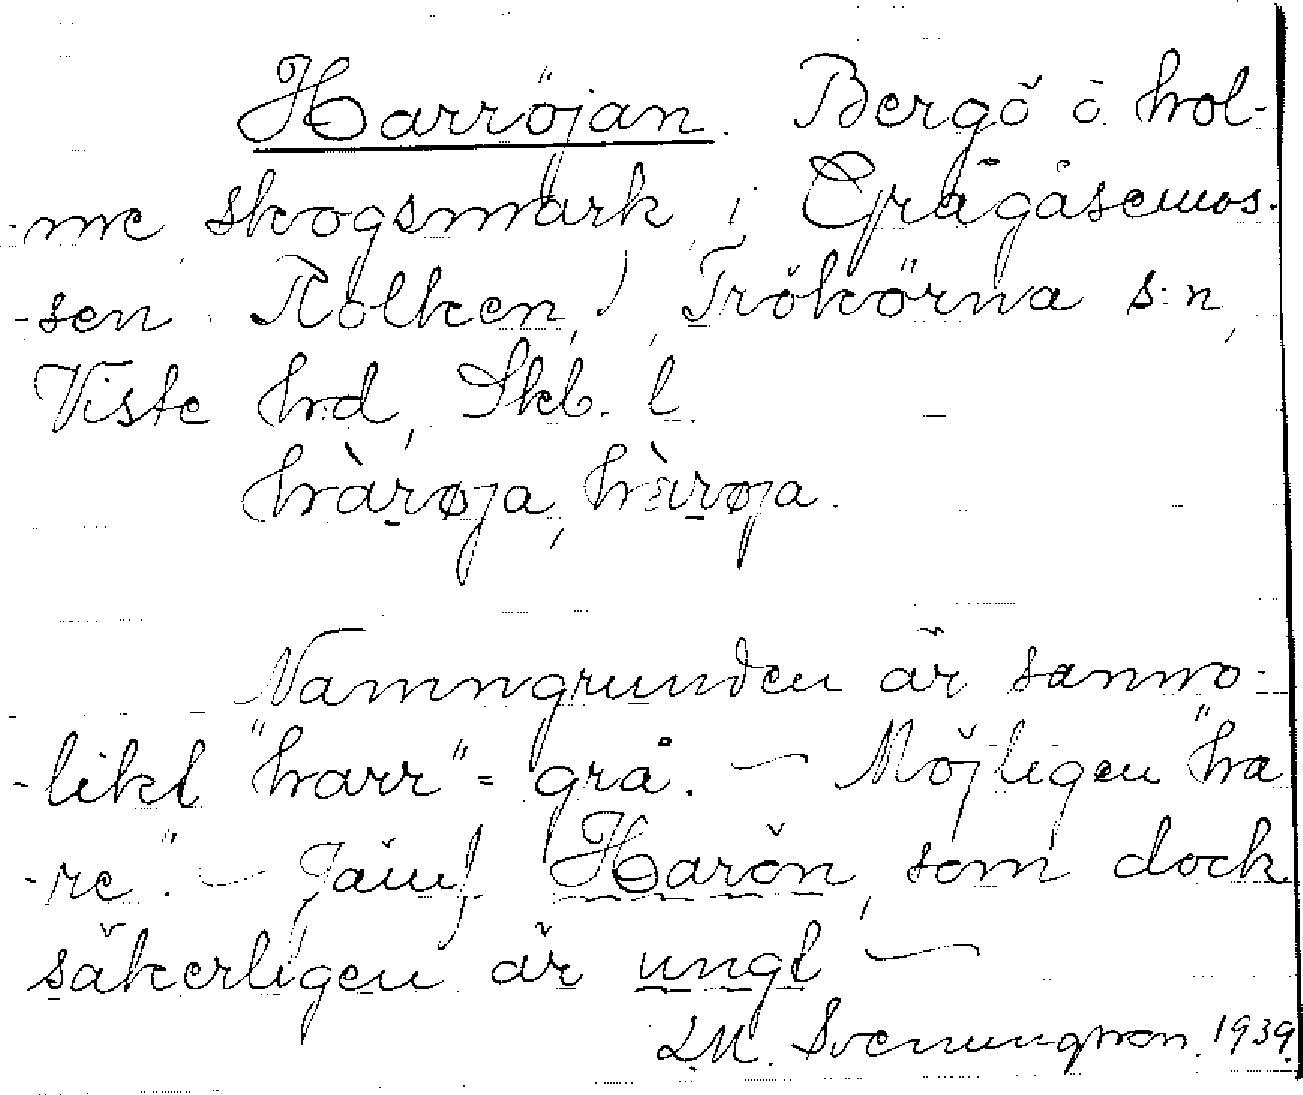 Harröjan. Bergö o. hol-
-me skogsmark, i Grågåsemos-
-sen Kolken, Trökörna s:n,
Viste hrd, Skb. l.
hàrøja, hàrøja.
Namngrunden är sanno-
-likt "harr" = grå. — Möjligen "ha
-re". — Jämf Harön, som dock
säkerligen är ungt —
LM. Svenungsson. 1939.